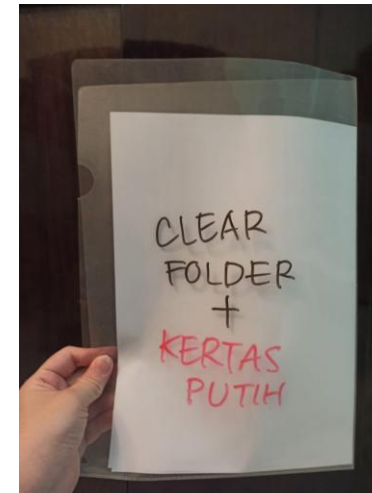 CLEAR
FOLDER
+
KERTAS
PUTIH